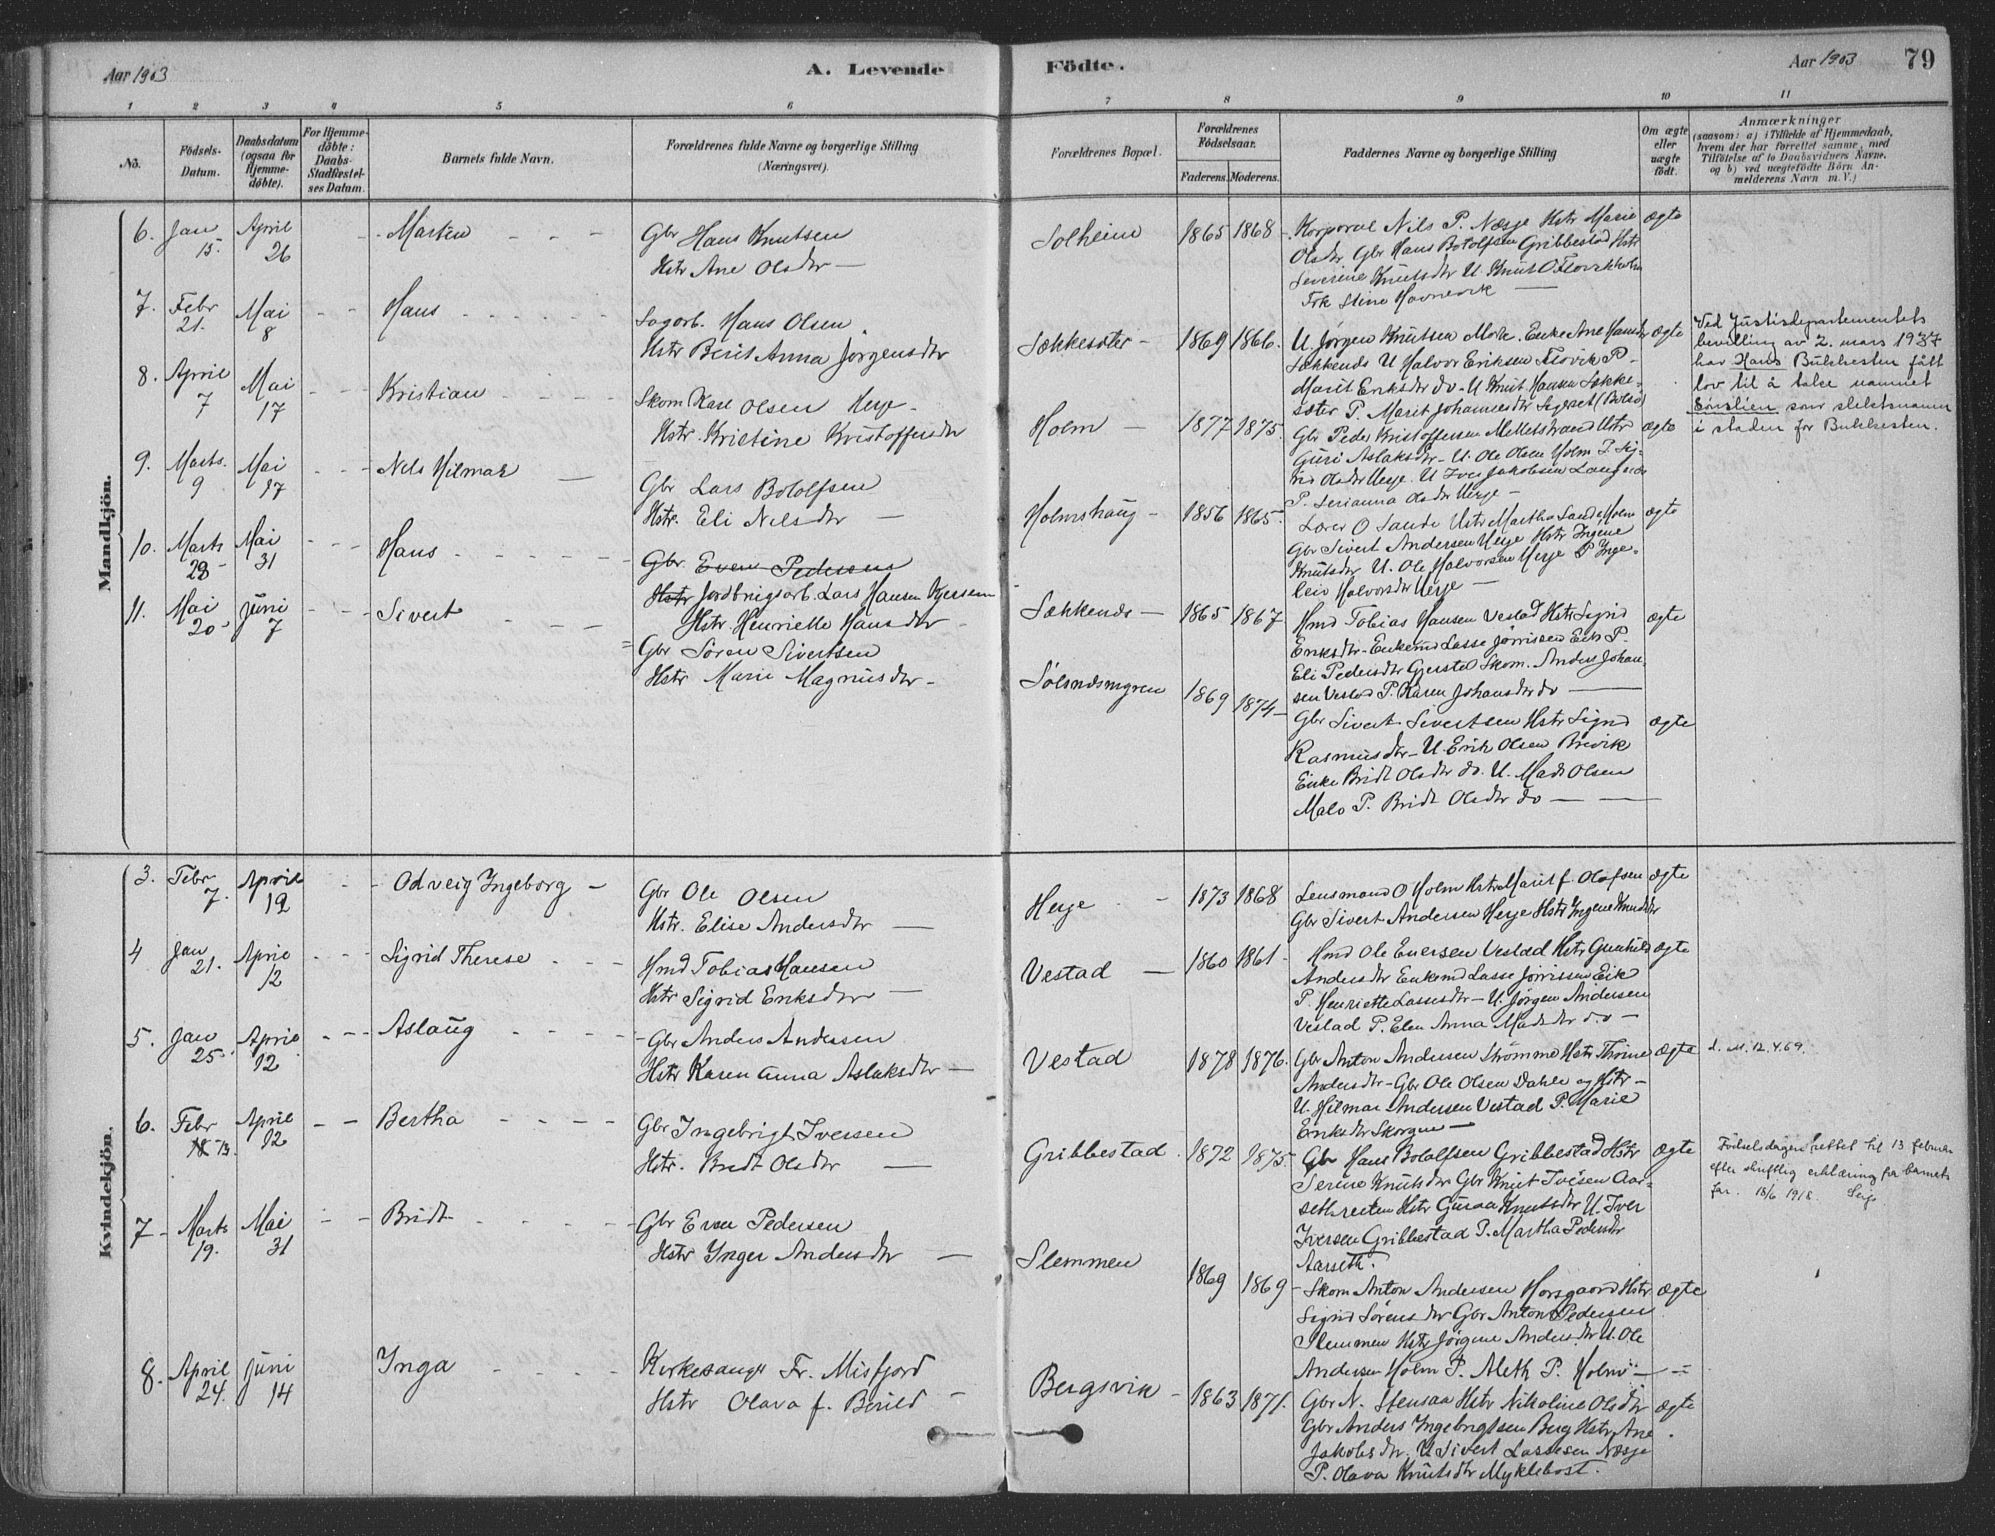 Aar 1903
A. Levende
Födte.
Aar 1903
79
1 2 3 4 5 6 7 8 9 10 11
No.
Födsels-
Datum.
Daabsdatum
(ogsaa for
Hjemme-
döbte).
For Hjemme-
döbte:
Daabs-
Stadfæstel-
ses Datum.
Barnets fulde Navn.
Forældrenes fulde Navne og borgerlige Stilling
(Næringsvei).
Forældrenes Bopæl.
Forældrenes
Födselsaar.
Faderens. Moderens.
Faddernes Navne og borgerlige Stilling
Om ægte
eller
uægte
födt.
Anmærkninger
(saasom: a) i Tilfælde af Hjemmedaab,
hvem der har forrettet samme, med
Tilföielse af to Daabsvidners Navne.
og b) ved uægtefödte Börn An-
melderens Navn m. V.)
Mandkjön.
6. Jan 15. April 26 Martin
Gbr Hans Knutsen
Hstr Ane Olsdtr
Solheim 1865 1868
Korporal Nils P. Næsje Hstr Marie
Olsdtr Gbr Hans Botolfsen Gribbestad Hstr
Severine Knutsdtr U. Knut O Flovikholm
Frk Stine Havnevik
ægte
7. Febr 21. Mai 8 Hans
Sagarb. Hans Olsen
Hstr Berit Anna Jørgensdtr
Sækkesæter 1869 1866.
U. Jørgen Knutsen Mok. Enke Ane Hansdtr
Sækkenes U Halvor Eriksen Flovik P
Marit Eriksdtr do - U Knut Hansen Sække-
sæter P. Marit Johannesdtr Legeret (Bolsø)
ægte
Ved Justisdepartementets
bevilling av 2. mars 1937
har Hans Bulchesten fått
lov til å take namnet
Sørslien som slektsnamn
i staden for Bulchesten.
8. April 7 Mai 17 Kristian
Skom Karl Olsen Herje
Hstr. Kristine Kristoffersdtr
Holm 1877 1875.
Gbr Peder Kristoffersen Melletstrand Hstr
Guri Aslaksdtr - U. Ole Olsen Holm P Sig-
rid Olsdtr Herje. U Iver Jakobsen
P. Serianna Olsdtr Herje -
ægte
9. Marts. 9 Mai 17 Nils Hilmar
Gbr Lars Bolofsen
Hstr. Eli Nilsdtr
Holmshaug 1856 1865.
Lærer O Sande Hstr Martha Sande Holm
Gbr Sivert Andersen Herje Hstr Ingine
Knutsdtr U. Ole Halvorsen Herje P Inge-
leiv Halvorsdtr Herje
ægte
10. Marts 28 Mai 31 Hans
Gbr. Even Pedersens
Hstr Jordbrugsarb. Lars Hansen Kjersem
Hstr. Henriette Hansdtr
Sækkenes 1865 1867
Hmd Tobias Hansen Vestad Hstr Sigrid
Eriksdtr - Enkemd Lasse Jørrissen Eik P.
Eli Pedersdtr Gjerstel Skom. Anders Johan-
sen Vestad P. Karen Johansdtr do
ægte
11. Mai 20 Juni 7 Sivert
Gbr Søren Sivertsen
Hstr Marie Magnusdtr -
Sølsnæsmyren 1869 1874
Gbr Sivert Sivertsen Hstr Sigrid
Rasmusdtr - U. Erik Olsen Brevik
Enke Bridt Olsdtr do. U. Mads Olsen
Malo P. Bridt Olsdtr do
ægte
Kvindekjön.
3. Febr 7. April 12 Odveig Ingeborg
Gbr Ole Olsen
Hstr. Elise Andersdtr
Herje 1873 1868
Lensmand O Holm Hstr Marit f. Olafsen
Gbr Sivert Andersen Herje Hstr Ingine Knutsdtr
ægte
4 Jan 21. April 12 Sigrid Therese
Hmd Tobias Hansen
Hstr Sigrid Eriksdtr
Vestad 1860 1861
Hmd Ole Evensen Vestad Hstr Gunhild
Andersdtr Enkemd Lasse Jørrissen Eik
P. Henriette Lassesdtr - U. Jørgen Andersen
Vestad P. Elen Anna Madsdtr do
ægte
5. Jan 25. April 12 Aslaug
Gbr Anders Andersen
Hstr Karen Anna Aslaksdtr
Vestad 1878 1876.
Gbr Anton Andersen Strømme Hstr Thorine
Andersdtr - Gbr Ole Olsen Dahle og Hstr -
U. Hilmar Andersen Vestad P. Marie
Eriksdtr Skorgen
ægte
d. M. 12.4.69.
6. Febr 18 13. April 12 Bertha
Gbr Ingebrigt Iversen
Hstr. Bredt Olsdtr
Gribbestad 1872 1875.
Gbr Hans Bolofsen Gribbestad Hstr
Serine Knutsdtr Gbr Knut Iversen Aar-
sethreiten Hstr Guraa Knutsdtr U. Iver
Iversen Gribbestad P. Martha Pedersdtr
Aarseth.
ægte
Födselsdagen rettet til 13 februar
efter skriftlig erklæring fra barnets
far. 18/6 1918.
7 Marts 19. Mai 31 Bridt
Gbr Even Pedersen
Hstr Inger Andersdtr
Slemmen 1869 1869
Skom Anton Andersen Horsgaard Hstr
Sigrid Sørensdtr Gbr Anton Pedersen
Slemmen Hstr Jørgine Andersdtr U. Ole
Andersen Holm P. Aleth P. Holm
ægte
8. April 24. Juni 14 Inga
Kirkesanger Fr. Misfjord
Hstr Olava f. Berild
Bergsvik 1863 1871.
Gbr N. Stensaa Hstr Nikoline Olsdtr
Gbr Anders Ingebrigtsen Berg Hstr Ane
Jakobsdtr. U Sivert Lassesen Næsje
P. Olava Knutsdtr Myklebost.
ægte